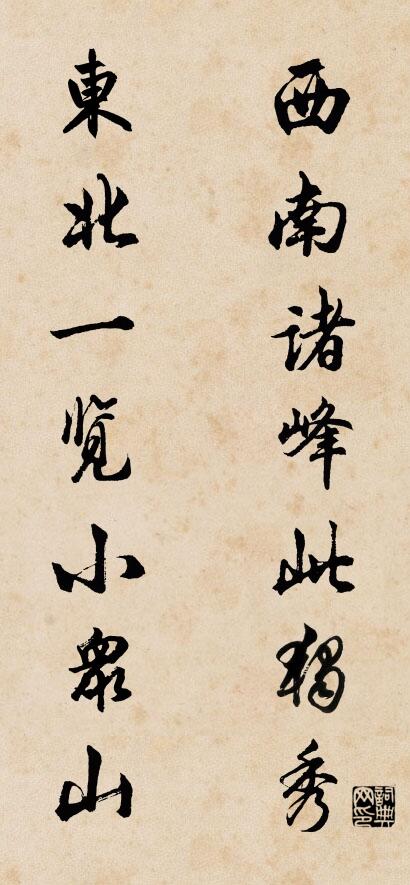 西南诸峰此獨秀
東北一览小眾山
詞典网印